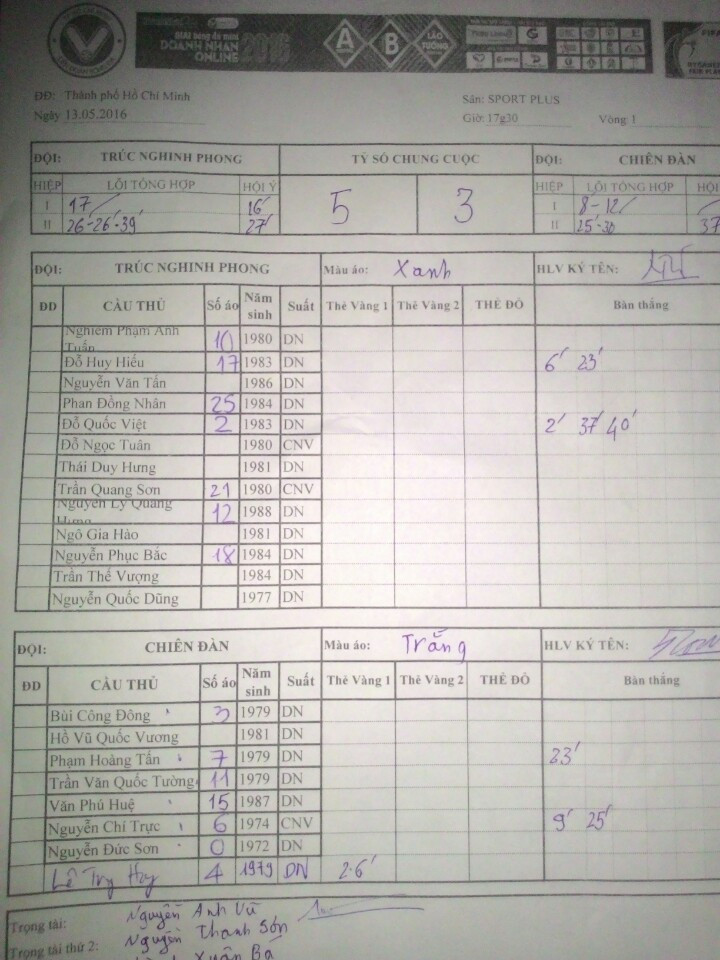 GIẢI bóng đá mini
DOANH NHÂN 2016
ONLINE
A B LÃO TƯỚNG
ĐĐ: Thành phố Hồ Chí Minh Sân: SPORT PLUS
Ngày 13.05.2016 Giờ: 17g30 Vòng 1
ĐỘI: TRÚC NGHINH PHONG TỶ SỐ CHUNG CUỘC ĐỘI: CHIÊN ĐÀN
HIỆP LỖI TỔNG HỢP HỘI Ý 5 3 HIỆP LỖI TỔNG HỢP HỘI
I 17' 16' I 8-12'
II 26-26'-39' 27' II 25'-30 37
ĐỘI: TRÚC NGHINH PHONG Màu áo: Xanh HLV KÝ TÊN:
ĐD CẦU THỦ Số áo Năm sinh Suất Thẻ Vàng 1 Thẻ Vàng 2 THẺ ĐỎ Bàn thắng
Nghiêm Phạm Anh Tuấn 10 1980 DN
Đỗ Huy Hiếu 17 1983 DN 6' 23'
Nguyễn Văn Tấn 1986 DN
Phan Đồng Nhân 25 1984 DN
Đỗ Quốc Việt 2 1983 DN 2' 37' 40'
Đỗ Ngọc Tuân 1980 CNV
Thái Duy Hưng 1981 DN
Trần Quang Sơn 21 1980 CNV
Nguyễn Lý Quang Hưng 12 1988 DN
Ngô Gia Hào 1981 DN
Nguyễn Phục Bắc 18 1984 DN
Trần Thế Vượng 1984 DN
Nguyễn Quốc Dũng 1977 DN
ĐỘI: CHIÊN ĐÀN Màu áo: Trắng HLV KÝ TÊN:
ĐD CẦU THỦ Số áo Năm sinh Suất Thẻ Vàng 1 Thẻ Vàng 2 THẺ ĐỎ Bàn thắng
Bùi Công Đông 3 1979 DN
Hồ Vũ Quốc Vương 1981 DN
Phạm Hoàng Tấn 7 1979 DN 23'
Trần Văn Quốc Tường 11 1979 DN
Văn Phú Huệ 15 1987 DN
Nguyễn Chí Trực 6 1974 CNV 9' 25'
Nguyễn Đức Sơn 0 1972 DN
Lê Huy 4 1979 DN 26'
Trọng tài: Nguyễn Anh Vũ
Trọng tài thứ 2: Nguyễn Thanh Sơn
Xuân Bá